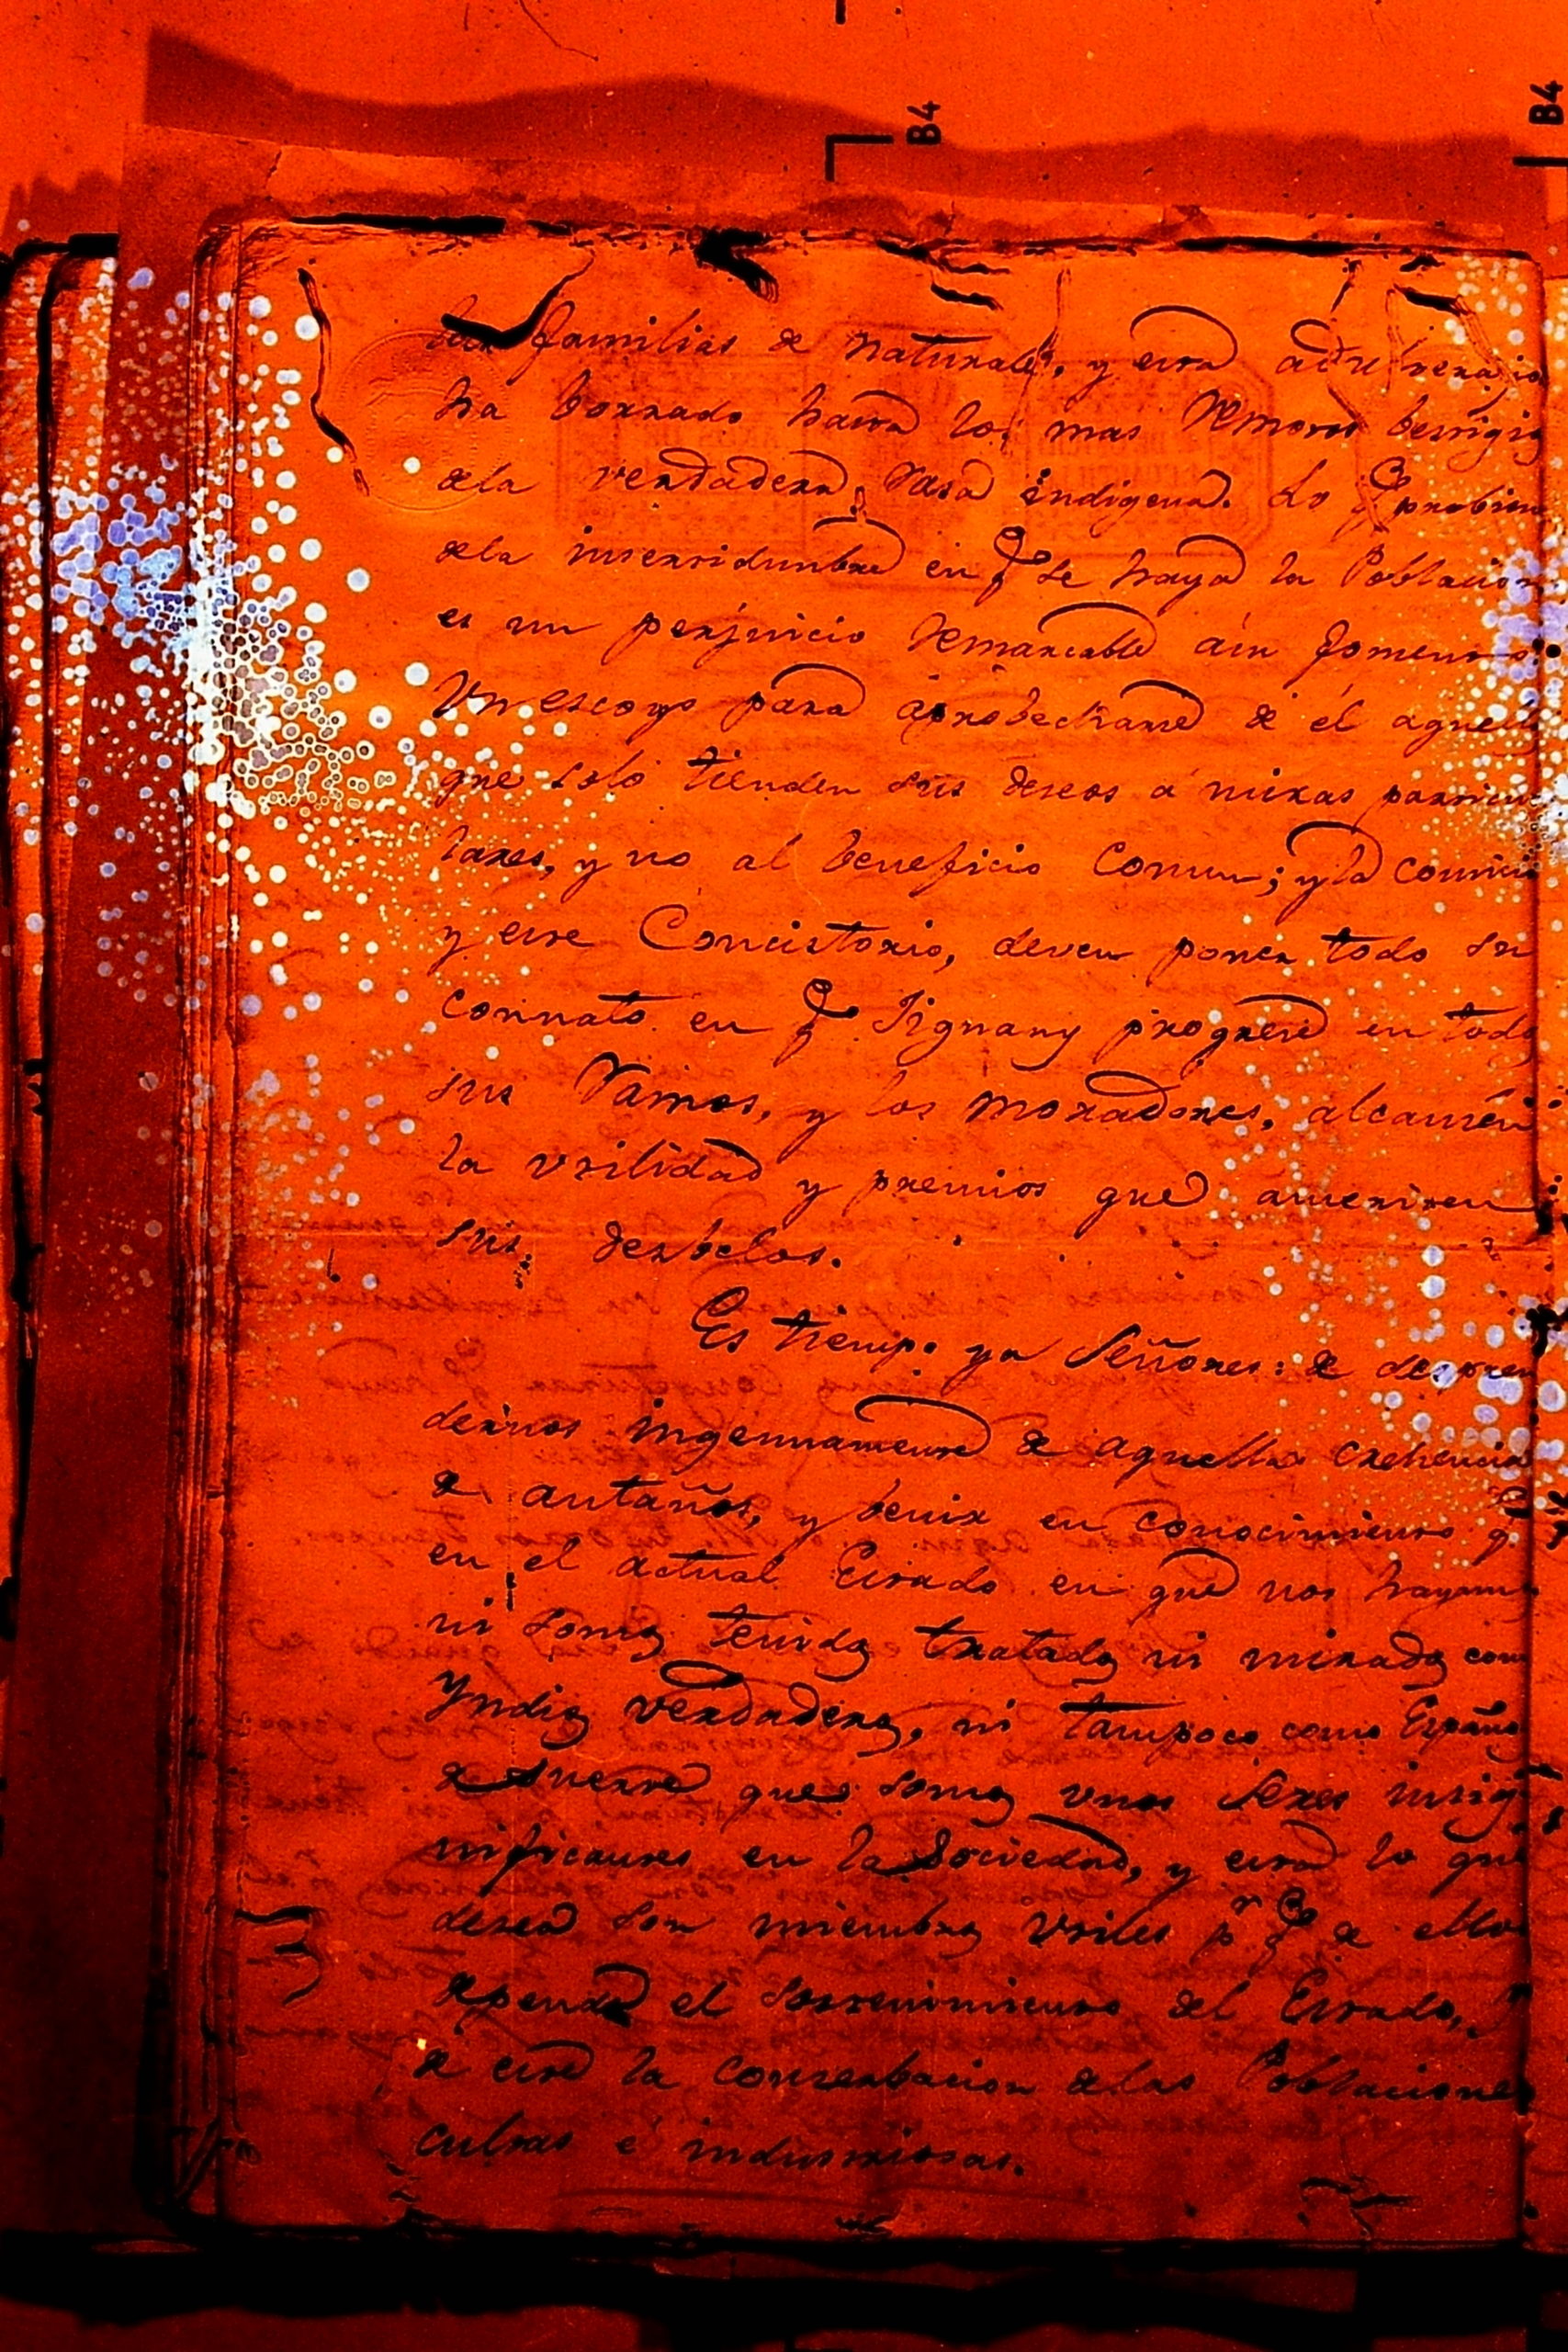 B4
B4
familias de naturales, y esta adulteracio
ha borrado hasta los mas remotos bestigio
dela verdadera rasa indigena. Lo q.e probiene
dela inserridumbre en q.e se haya la Poblacion
es un perjuicio remarcable aún fomento:
Un escoyo para aprobecharse de él aquello
que solo tienden sus deseos á miras particu
lares, y no al beneficio Comun; y la comicio
y este Concistorio, deven poner todo su
connato en q.e Tiguany progrese en todo
sus Ramos, y los moradores, alcansen
la utilidad y premios que ameriten
sus desbelos.
Es tiempo ya Señores: de despren
dernos ingenuamente de aquella crehencia
de antaños, y benir en conocimiento q.e
en el actual Estado en que nos hayam
ni somos tenidos tratados ni mirados com
Yndios verdaderos, ni tampoco como Español
de suerte que somos unos seres insig
nificantes en la Sociedad, y esta lo que
desea son miembros utiles p.r q.e de ellos
depende el sostenimiento del Estado,
de este la conserbacion delas Poblacione
cultas é industriosas.